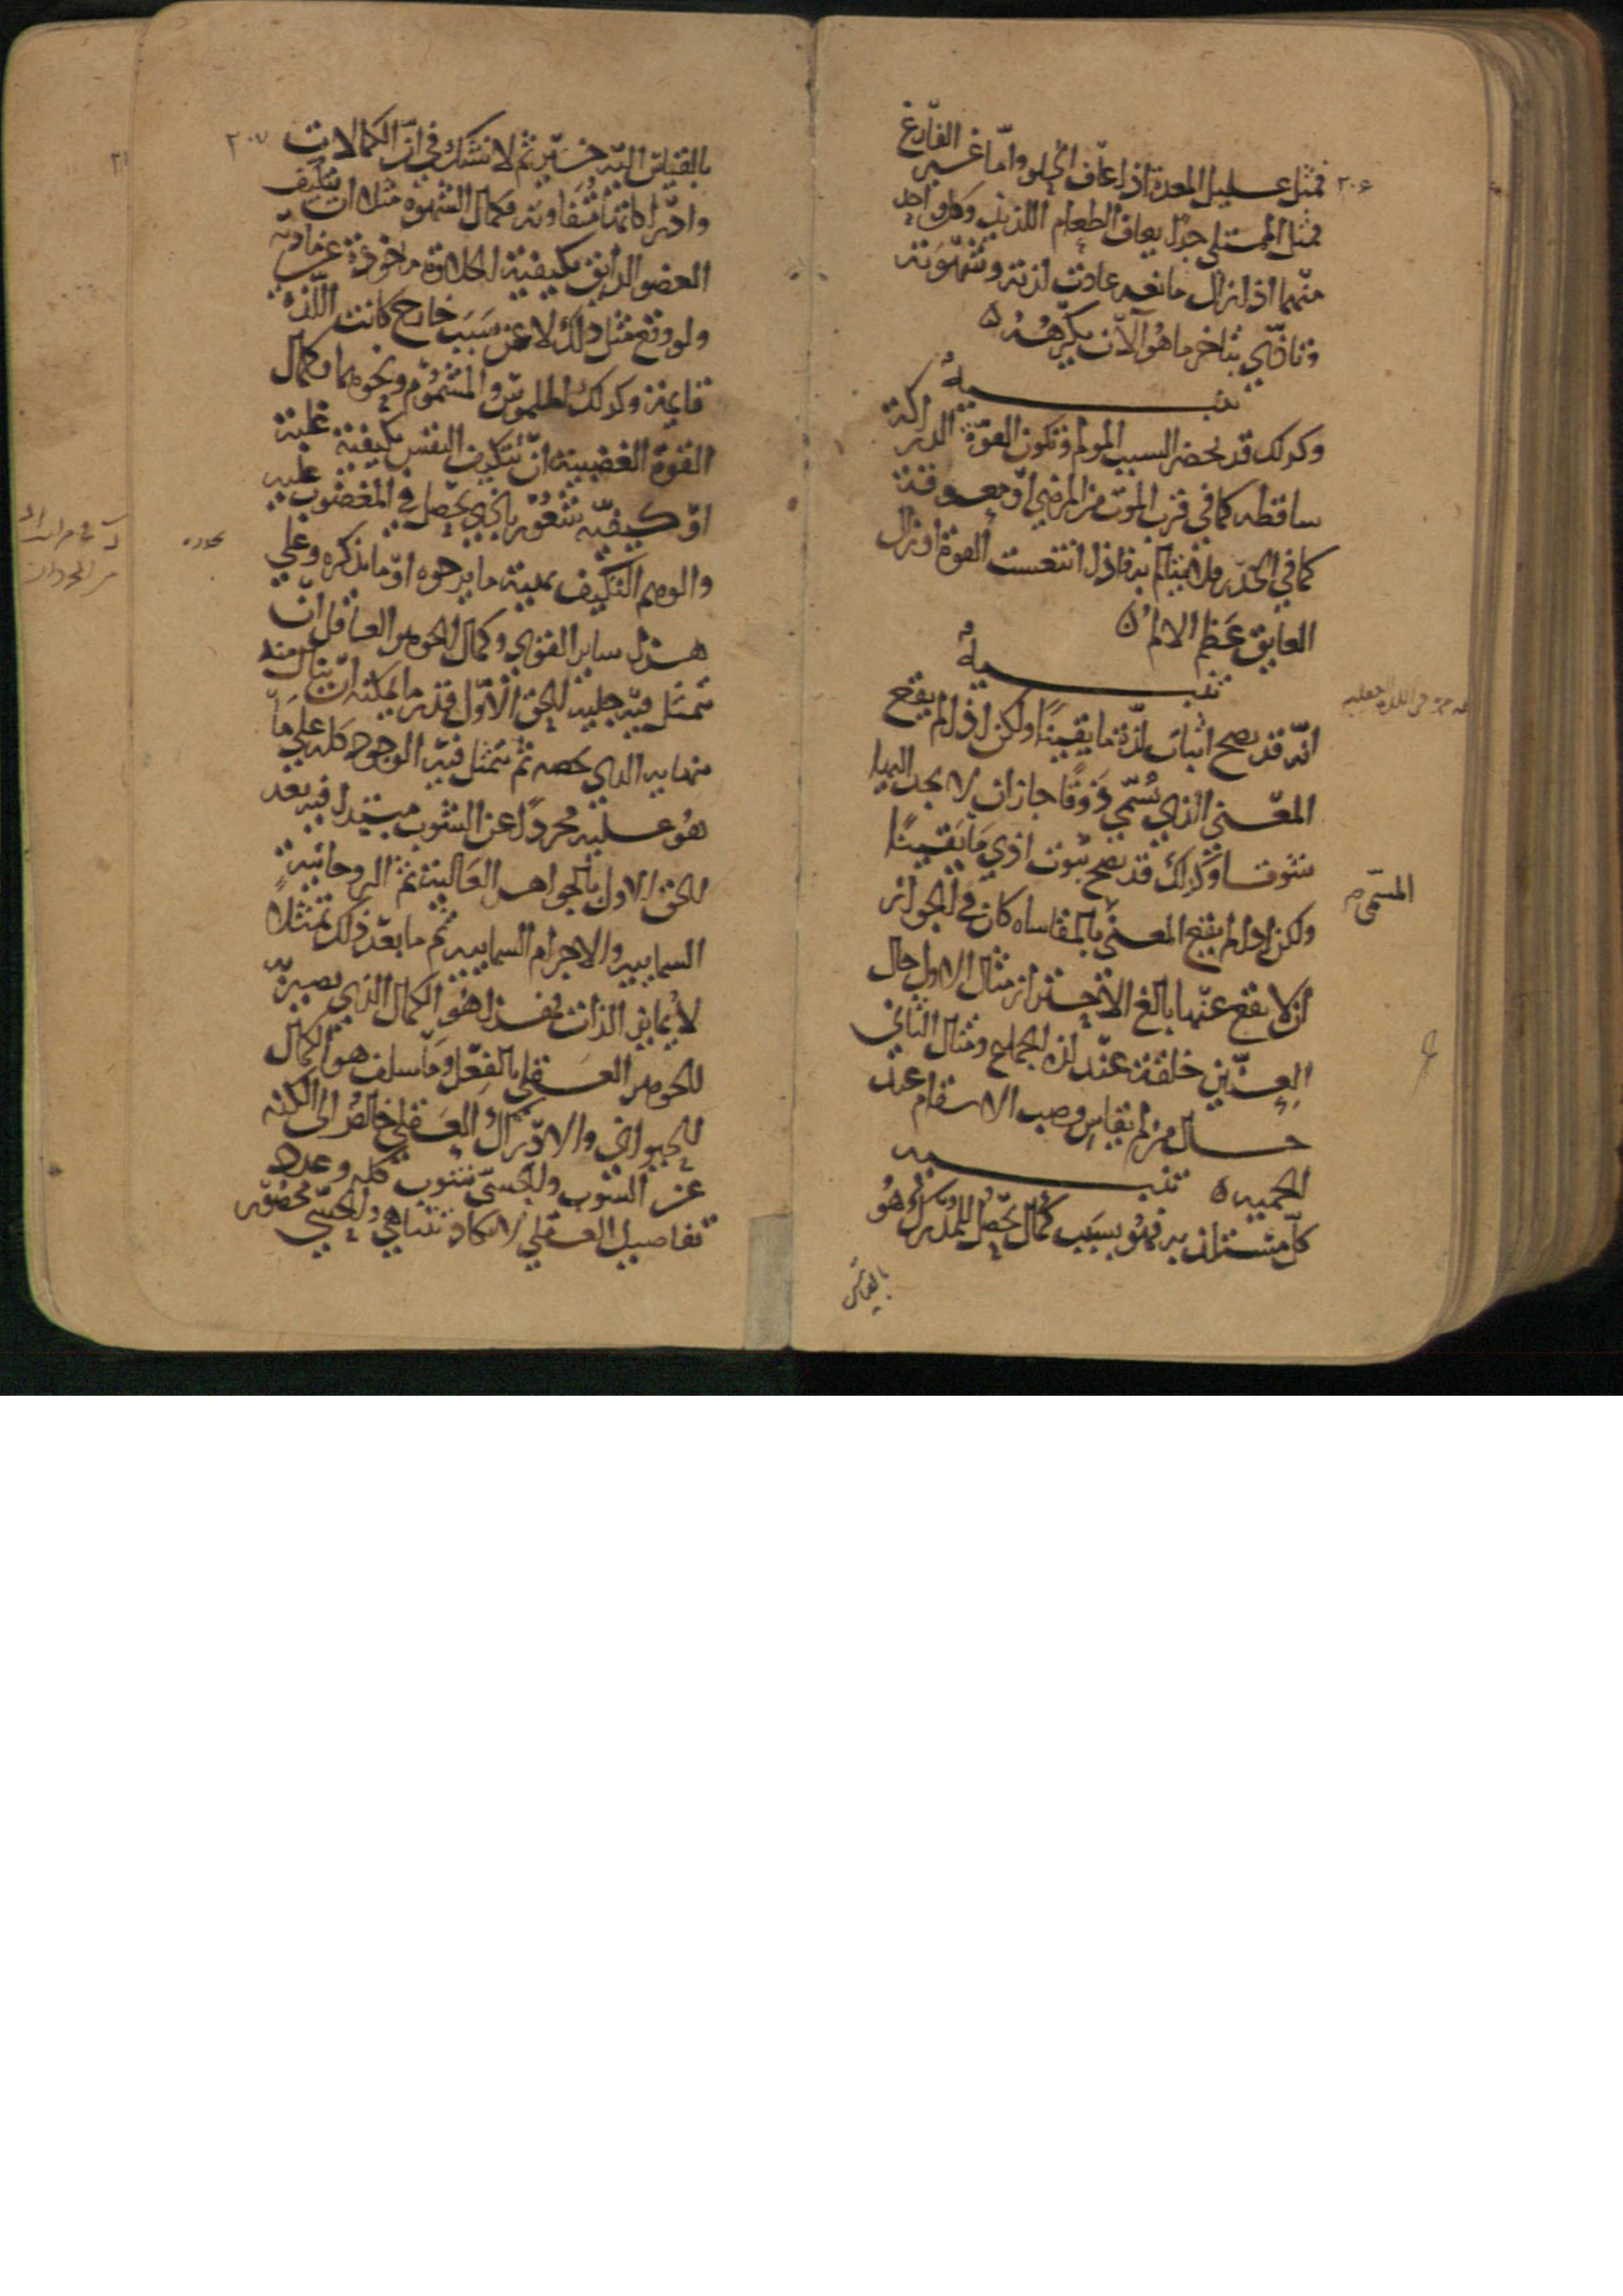 ٢٠٦
فمثل عليل المعدة اذا عاف الحلو واما غير الفارغ
فمثل الممتلي جدا يعاف الطعام اللذيذ وكل واحد
منهما اذا زال مانعه عادت لذته وشهوته
وتاذي بتاخر ما هو الآن يكرهه ه
تنبيه
وكذلك قد يحضر السبب المولم وتكون القوة الدراكة
ساقطه كما في قرب الموت من المرضي او معوقة
كما في الخدر فلا يتالم به فاذا انتعشت القوة او زال
العايق عظم الالم ه
تنبيه
انه قد يصح اثبات لذة ما يقينا ولكن اذا لم يقع
المعني الذي يسمي ذوقا جاز ان لا نجد اليها
شوقا وكذلك قد يصح ثبوت اذي ما يقينا
ولكن اذا لم يقع المعني بالمقاساه كان في الجواز
المسمى
ان لا يقع عنها بالغ الاحتراز مثال الاول حال
العنين خلقة عند لذه الجماع ومثال الثاني
حال من لم يقاس وصب الاسقام عند
الحميه ه تنبيه
كل مستلذ به فهو بسبب كمال يحصل للمدرك وهو
بالقياس
٢٠٧
بالقياس اليه خير ثم لا نشك في ان الكمالات
وادراكاتها متفاوته فكمال الشهوة مثلا ان يتكيف
العضو الذايق بكيفية الحلاوة ماخوذة عن مادته
ولو وقع مثل ذلك لا عن سبب خارج كانت اللذه
قايمة وكذلك الملموس والمشموم ونحوهما وكمال
القوة الغضبية ان تتكيف النفس بكيفية غلبة
او كيفيه شعور باذي يحصل في المغضوب عليه
والوهم التكيف بهيئة ما يرجوه او ما يذكره وعلي
هذا ساير القوي وكمال الجوهر العاقل ان
تتمثل فيه جلية الحق الاول قدر ما يمكنه ان ينال منه
ببهايه الذي يخصه ثم يتمثل فيه الوجود كله علي ما
هو عليه مجردا عن الشوب مبتدا فيه بعد
الحق الاول بالجواهر العالية ثم الروحانيه
السماييه والاجرام السماييه ثم ما بعد ذلك تمثلا
لا يمايز الذات فهذا هو الكمال الذي يصير به
الجوهر العقلي بالفعل وما سلف هو الكمال
الحيواني والادراك العقلي خالص الى الكنه
عن الشوب والحسي شوب كله وعدد
تفاصيل العقلي لا يكاد يتناهي والحسي محصوره